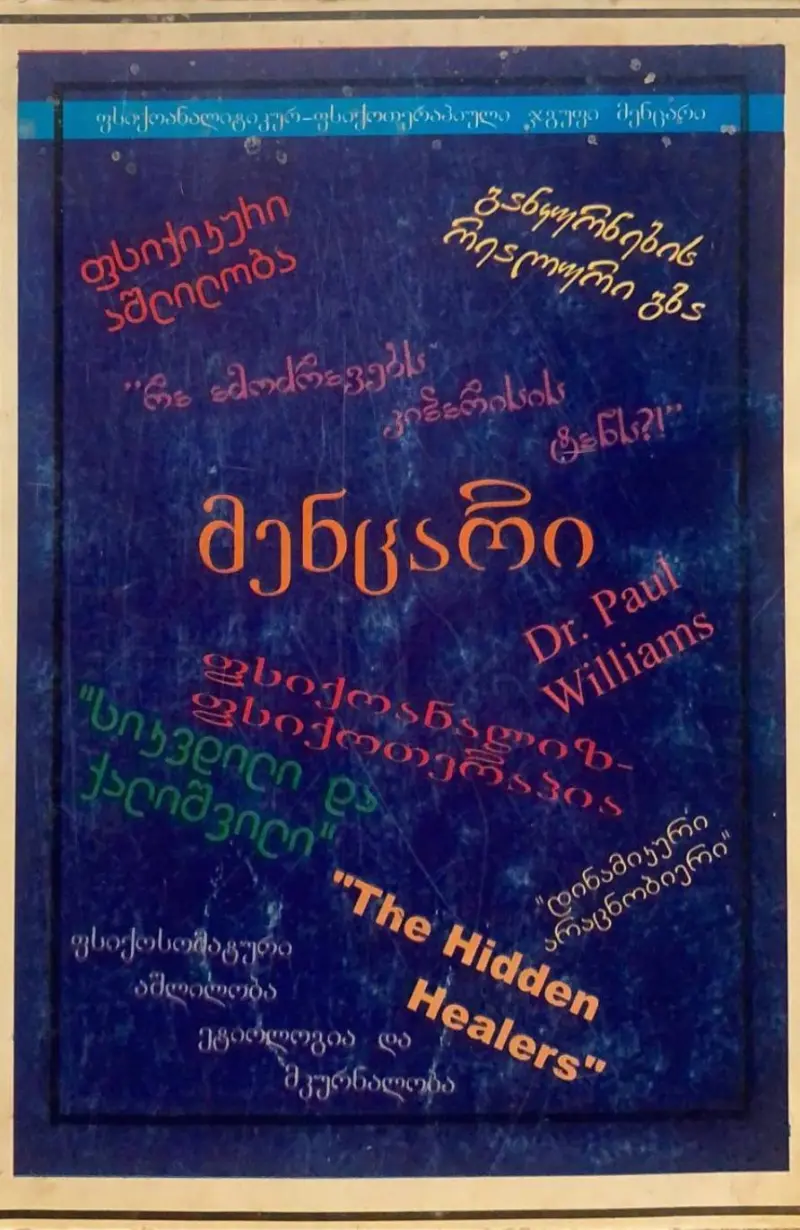 ფსიქოანალიტიკურ-ფსიქოთერაპიული ჯგუფი მენცარი
ფსიქიკური
აშლილობა
განკურნების
რეალური გზა
"რა ამოძრავებს
კიპარისის
ტანს?!"
მენცარი
Dr. Paul
Williams
ფსიქოანალიზ-
ფსიქოთერაპია
"სიკვდილი და
ქალიშვილი"
"დინამიკური
არაცნობიერი"
"The Hidden
Healers"
ფსიქოსომატური
აშლილობა
ეტიოლოგია და
მკურნალობა